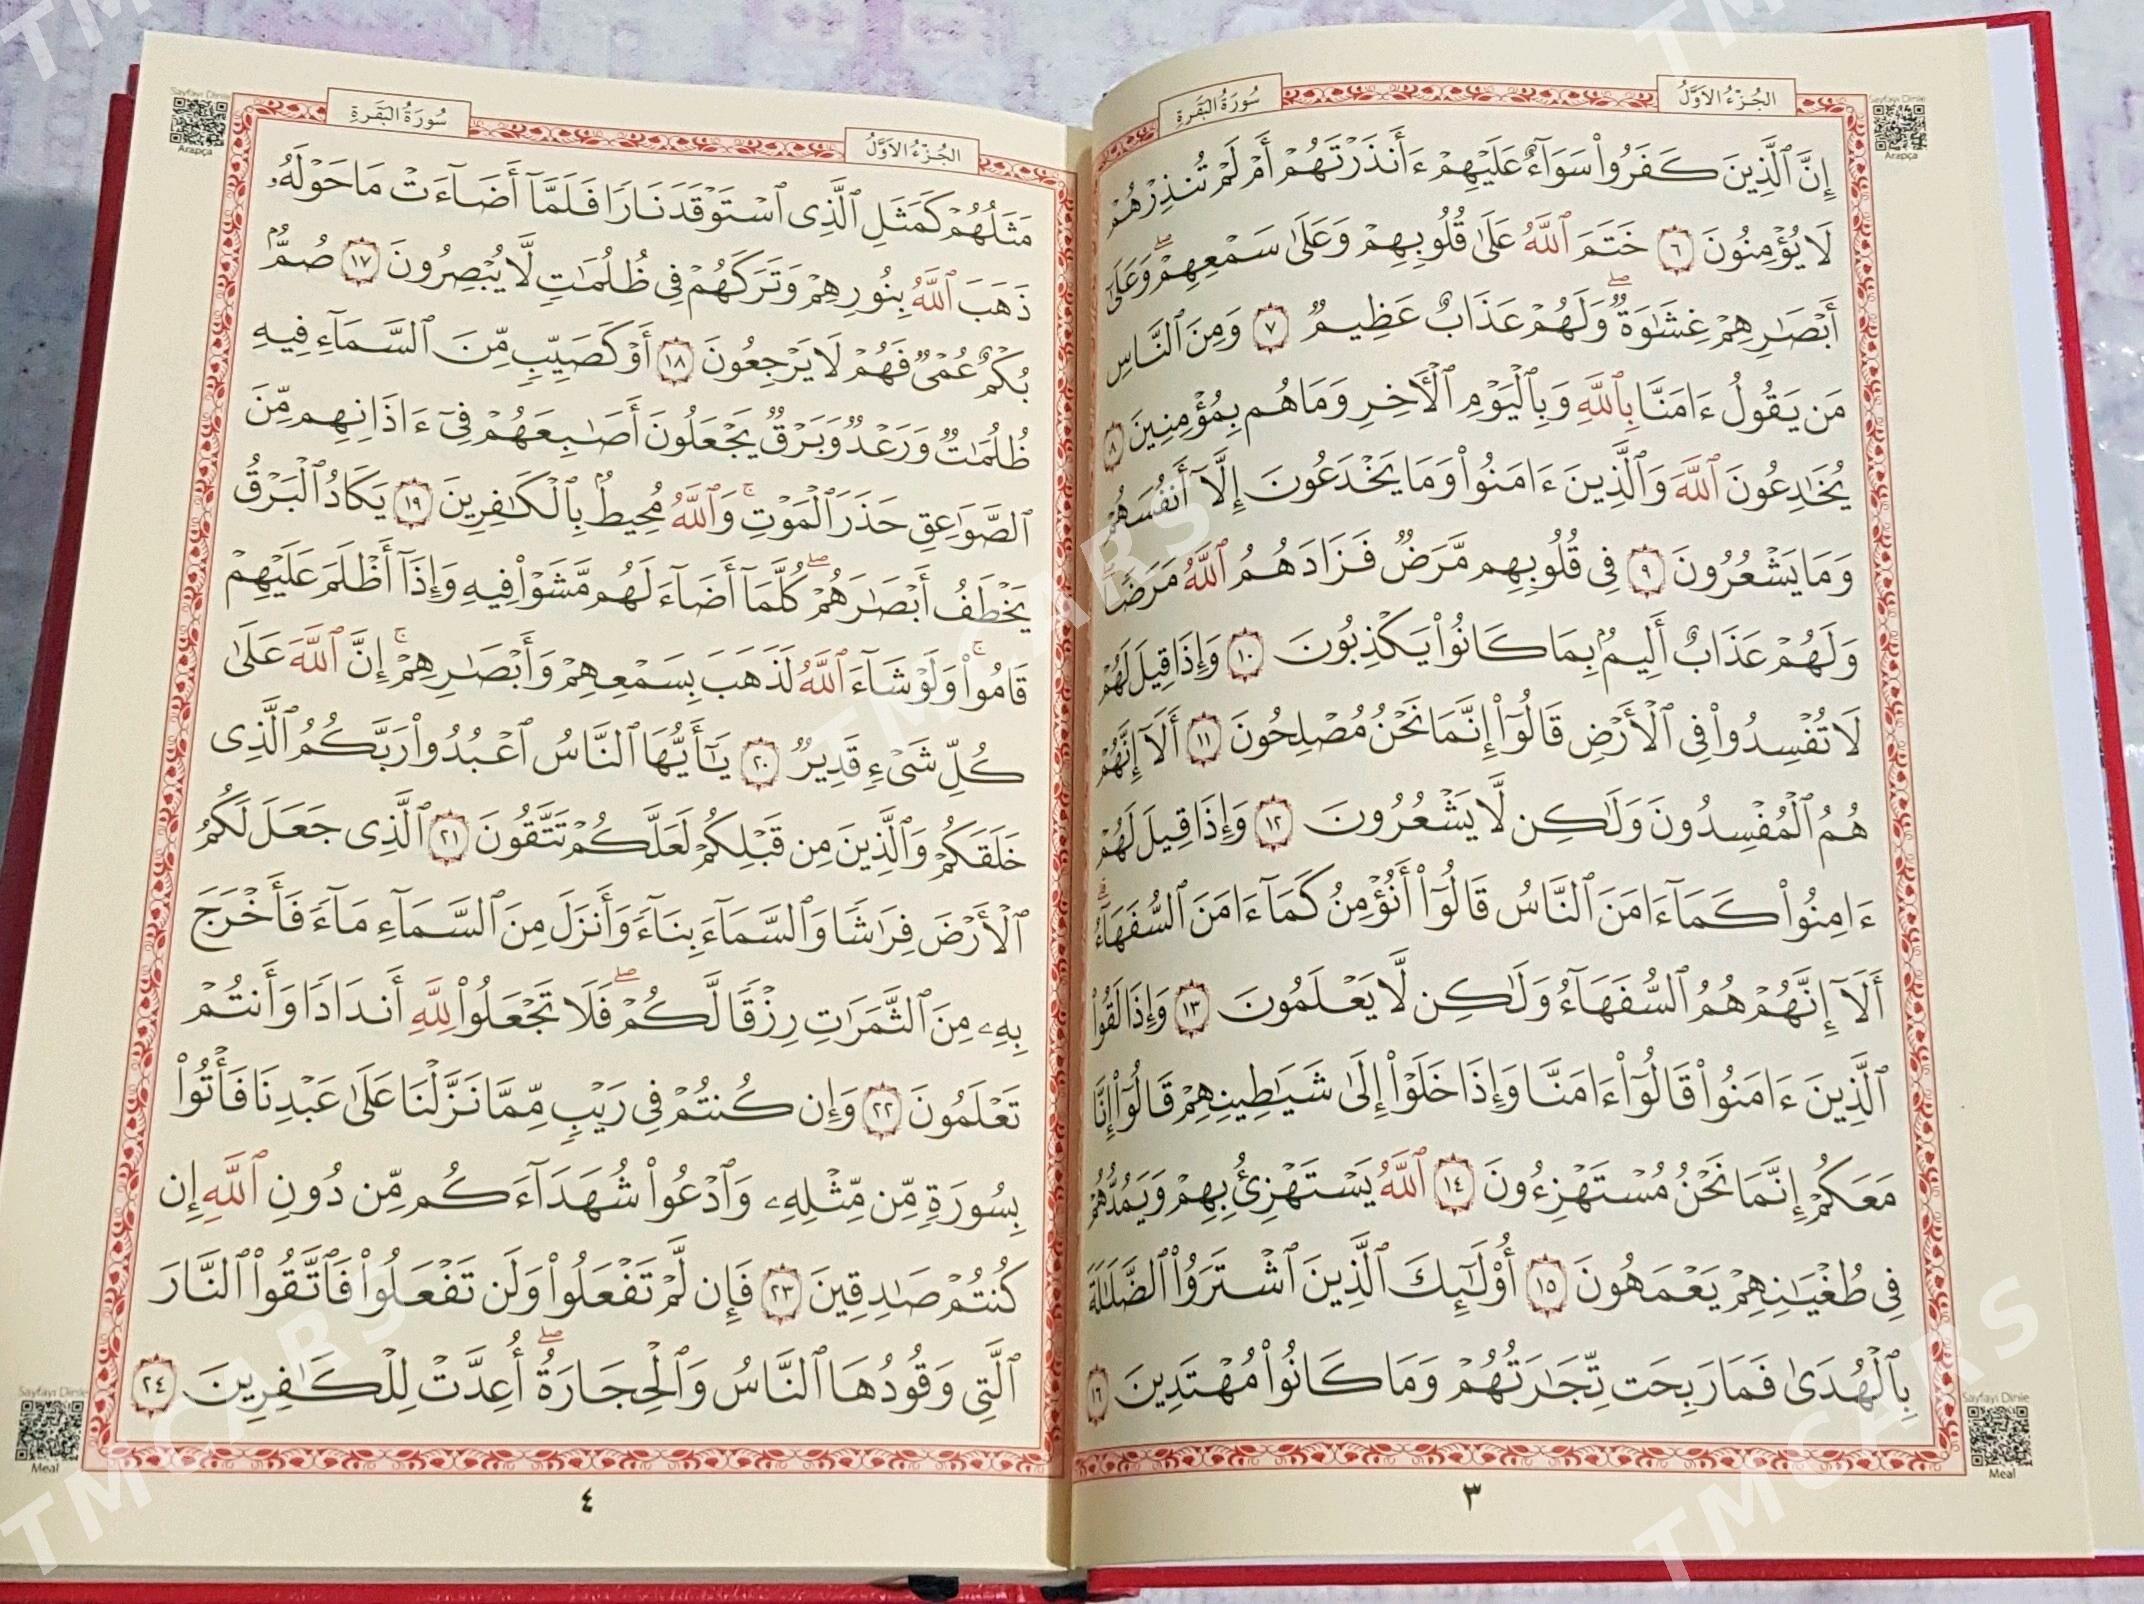 الجُزْءُ الأَوَّلُ
سُورَةُ البَقَرَةِ
Sayfayı Dinle
Arapça
إِنَّ ٱلَّذِينَ كَفَرُواْ سَوَآءٌ عَلَيْهِمْ ءَأَنذَرْتَهُمْ أَمْ لَمْ تُنذِرْهُمْ
لَا يُؤْمِنُونَ ٦ خَتَمَ ٱللَّهُ عَلَىٰ قُلُوبِهِمْ وَعَلَىٰ سَمْعِهِمْۖ وَعَلَىٰٓ
أَبْصَٰرِهِمْ غِشَٰوَةٌۖ وَلَهُمْ عَذَابٌ عَظِيمٌ ٧ وَمِنَ ٱلنَّاسِ
مَن يَقُولُ ءَامَنَّا بِٱللَّهِ وَبِٱلْيَوْمِ ٱلْأَخِرِ وَمَا هُم بِمُؤْمِنِينَ ٨
يُخَٰدِعُونَ ٱللَّهَ وَٱلَّذِينَ ءَامَنُواْ وَمَا يَخْدَعُونَ إِلَّآ أَنفُسَهُمْ
وَمَا يَشْعُرُونَ ٩ فِى قُلُوبِهِم مَّرَضٌ فَزَادَهُمُ ٱللَّهُ مَرَضًاۖ
وَلَهُمْ عَذَابٌ أَلِيمٌۢ بِمَا كَانُواْ يَكْذِبُونَ ١٠ وَإِذَا قِيلَ لَهُمْ
لَا تُفْسِدُواْ فِى ٱلْأَرْضِ قَالُوٓاْ إِنَّمَا نَحْنُ مُصْلِحُونَ ١١ أَلَآ إِنَّهُمْ
هُمُ ٱلْمُفْسِدُونَ وَلَٰكِن لَّا يَشْعُرُونَ ١٢ وَإِذَا قِيلَ لَهُمْ
ءَامِنُواْ كَمَآ ءَامَنَ ٱلنَّاسُ قَالُوٓاْ أَنُؤْمِنُ كَمَآ ءَامَنَ ٱلسُّفَهَآءُۗ
أَلَآ إِنَّهُمْ هُمُ ٱلسُّفَهَآءُ وَلَٰكِن لَّا يَعْلَمُونَ ١٣ وَإِذَا لَقُواْ
ٱلَّذِينَ ءَامَنُواْ قَالُوٓاْ ءَامَنَّا وَإِذَا خَلَوْاْ إِلَىٰ شَيَٰطِينِهِمْ قَالُوٓاْ إِنَّا
مَعَكُمْ إِنَّمَا نَحْنُ مُسْتَهْزِءُونَ ١٤ ٱللَّهُ يَسْتَهْزِئُ بِهِمْ وَيَمُدُّهُمْ
فِى طُغْيَٰنِهِمْ يَعْمَهُونَ ١٥ أُوْلَٰٓئِكَ ٱلَّذِينَ ٱشْتَرَوُاْ ٱلضَّلَٰلَةَ
بِٱلْهُدَىٰ فَمَا رَبِحَت تِّجَٰرَتُهُمْ وَمَا كَانُواْ مُهْتَدِينَ ١٦
Sayfayı Dinle
Meal
٣
الجُزْءُ الأَوَّلُ
سُورَةُ البَقَرَةِ
Sayfayı Dinle
Arapça
مَثَلُهُمْ كَمَثَلِ ٱلَّذِى ٱسْتَوْقَدَ نَارًا فَلَمَّآ أَضَآءَتْ مَا حَوْلَهُۥ
ذَهَبَ ٱللَّهُ بِنُورِهِمْ وَتَرَكَهُمْ فِى ظُلُمَٰتٍ لَّا يُبْصِرُونَ ١٧ صُمٌّۢ
بُكْمٌ عُمْىٌ فَهُمْ لَا يَرْجِعُونَ ١٨ أَوْ كَصَيِّبٍ مِّنَ ٱلسَّمَآءِ فِيهِ
ظُلُمَٰتٌ وَرَعْدٌ وَبَرْقٌ يَجْعَلُونَ أَصَٰبِعَهُمْ فِىٓ ءَاذَانِهِم مِّنَ
ٱلصَّوَٰعِقِ حَذَرَ ٱلْمَوْتِۚ وَٱللَّهُ مُحِيطٌۢ بِٱلْكَٰفِرِينَ ١٩ يَكَادُ ٱلْبَرْقُ
يَخْطَفُ أَبْصَٰرَهُمْۖ كُلَّمَآ أَضَآءَ لَهُم مَّشَوْاْ فِيهِ وَإِذَآ أَظْلَمَ عَلَيْهِمْ
قَامُواْۚ وَلَوْ شَآءَ ٱللَّهُ لَذَهَبَ بِسَمْعِهِمْ وَأَبْصَٰرِهِمْۚ إِنَّ ٱللَّهَ عَلَىٰ
كُلِّ شَىْءٍ قَدِيرٌ ٢٠ يَٰٓأَيُّهَا ٱلنَّاسُ ٱعْبُدُواْ رَبَّكُمُ ٱلَّذِى
خَلَقَكُمْ وَٱلَّذِينَ مِن قَبْلِكُمْ لَعَلَّكُمْ تَتَّقُونَ ٢١ ٱلَّذِى جَعَلَ لَكُمُ
ٱلْأَرْضَ فِرَٰشًا وَٱلسَّمَآءَ بِنَآءً وَأَنزَلَ مِنَ ٱلسَّمَآءِ مَآءً فَأَخْرَجَ
بِهِۦ مِنَ ٱلثَّمَرَٰتِ رِزْقًا لَّكُمْۖ فَلَا تَجْعَلُواْ لِلَّهِ أَندَادًا وَأَنتُمْ
تَعْلَمُونَ ٢٢ وَإِن كُنتُمْ فِى رَيْبٍ مِّمَّا نَزَّلْنَا عَلَىٰ عَبْدِنَا فَأْتُواْ
بِسُورَةٍ مِّن مِّثْلِهِۦ وَٱدْعُواْ شُهَدَآءَكُم مِّن دُونِ ٱللَّهِ إِن
كُنتُمْ صَٰدِقِينَ ٢٣ فَإِن لَّمْ تَفْعَلُواْ وَلَن تَفْعَلُواْ فَٱتَّقُواْ ٱلنَّارَ
ٱلَّتِى وَقُودُهَا ٱلنَّاسُ وَٱلْحِجَارَةُۖ أُعِدَّتْ لِلْكَٰفِرِينَ ٢٤
Sayfayı Dinle
Meal
٤
TMCARS
TMCARS
TMCARS
TMCARS